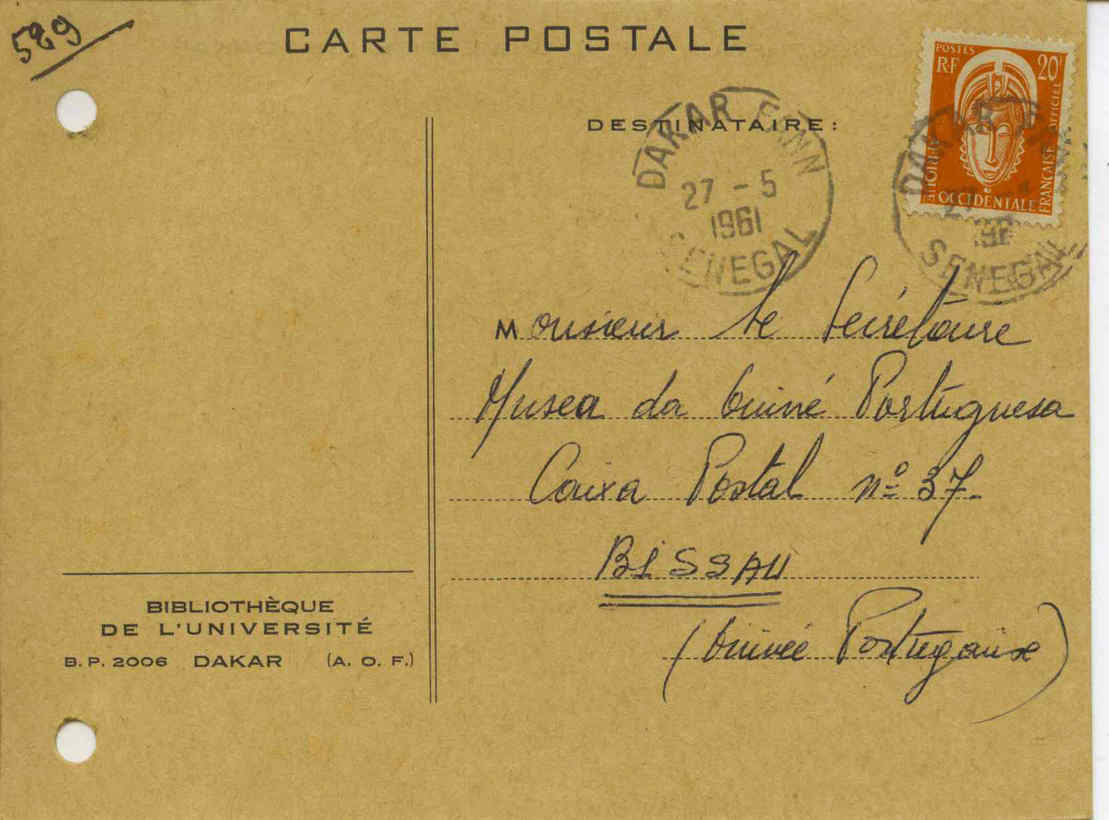 589
CARTE POSTALE
POSTES
RF 20F
AFRIQUE OCCIDENTALE FRANÇAISE OFFICIEL
DESTINATAIRE:
DAKAR FANN
27 - 5
1961
SENEGAL
DAKAR FANN
27 - 5
1961
SENEGAL
Monsieur le Secrétaire
Musea da Guiné Portuguesa
Caixa Postal nº 37-
BISSAU
(Guinée Portugaise)
BIBLIOTHÈQUE
DE L'UNIVERSITÉ
B. P. 2006 DAKAR (A. O. F.)